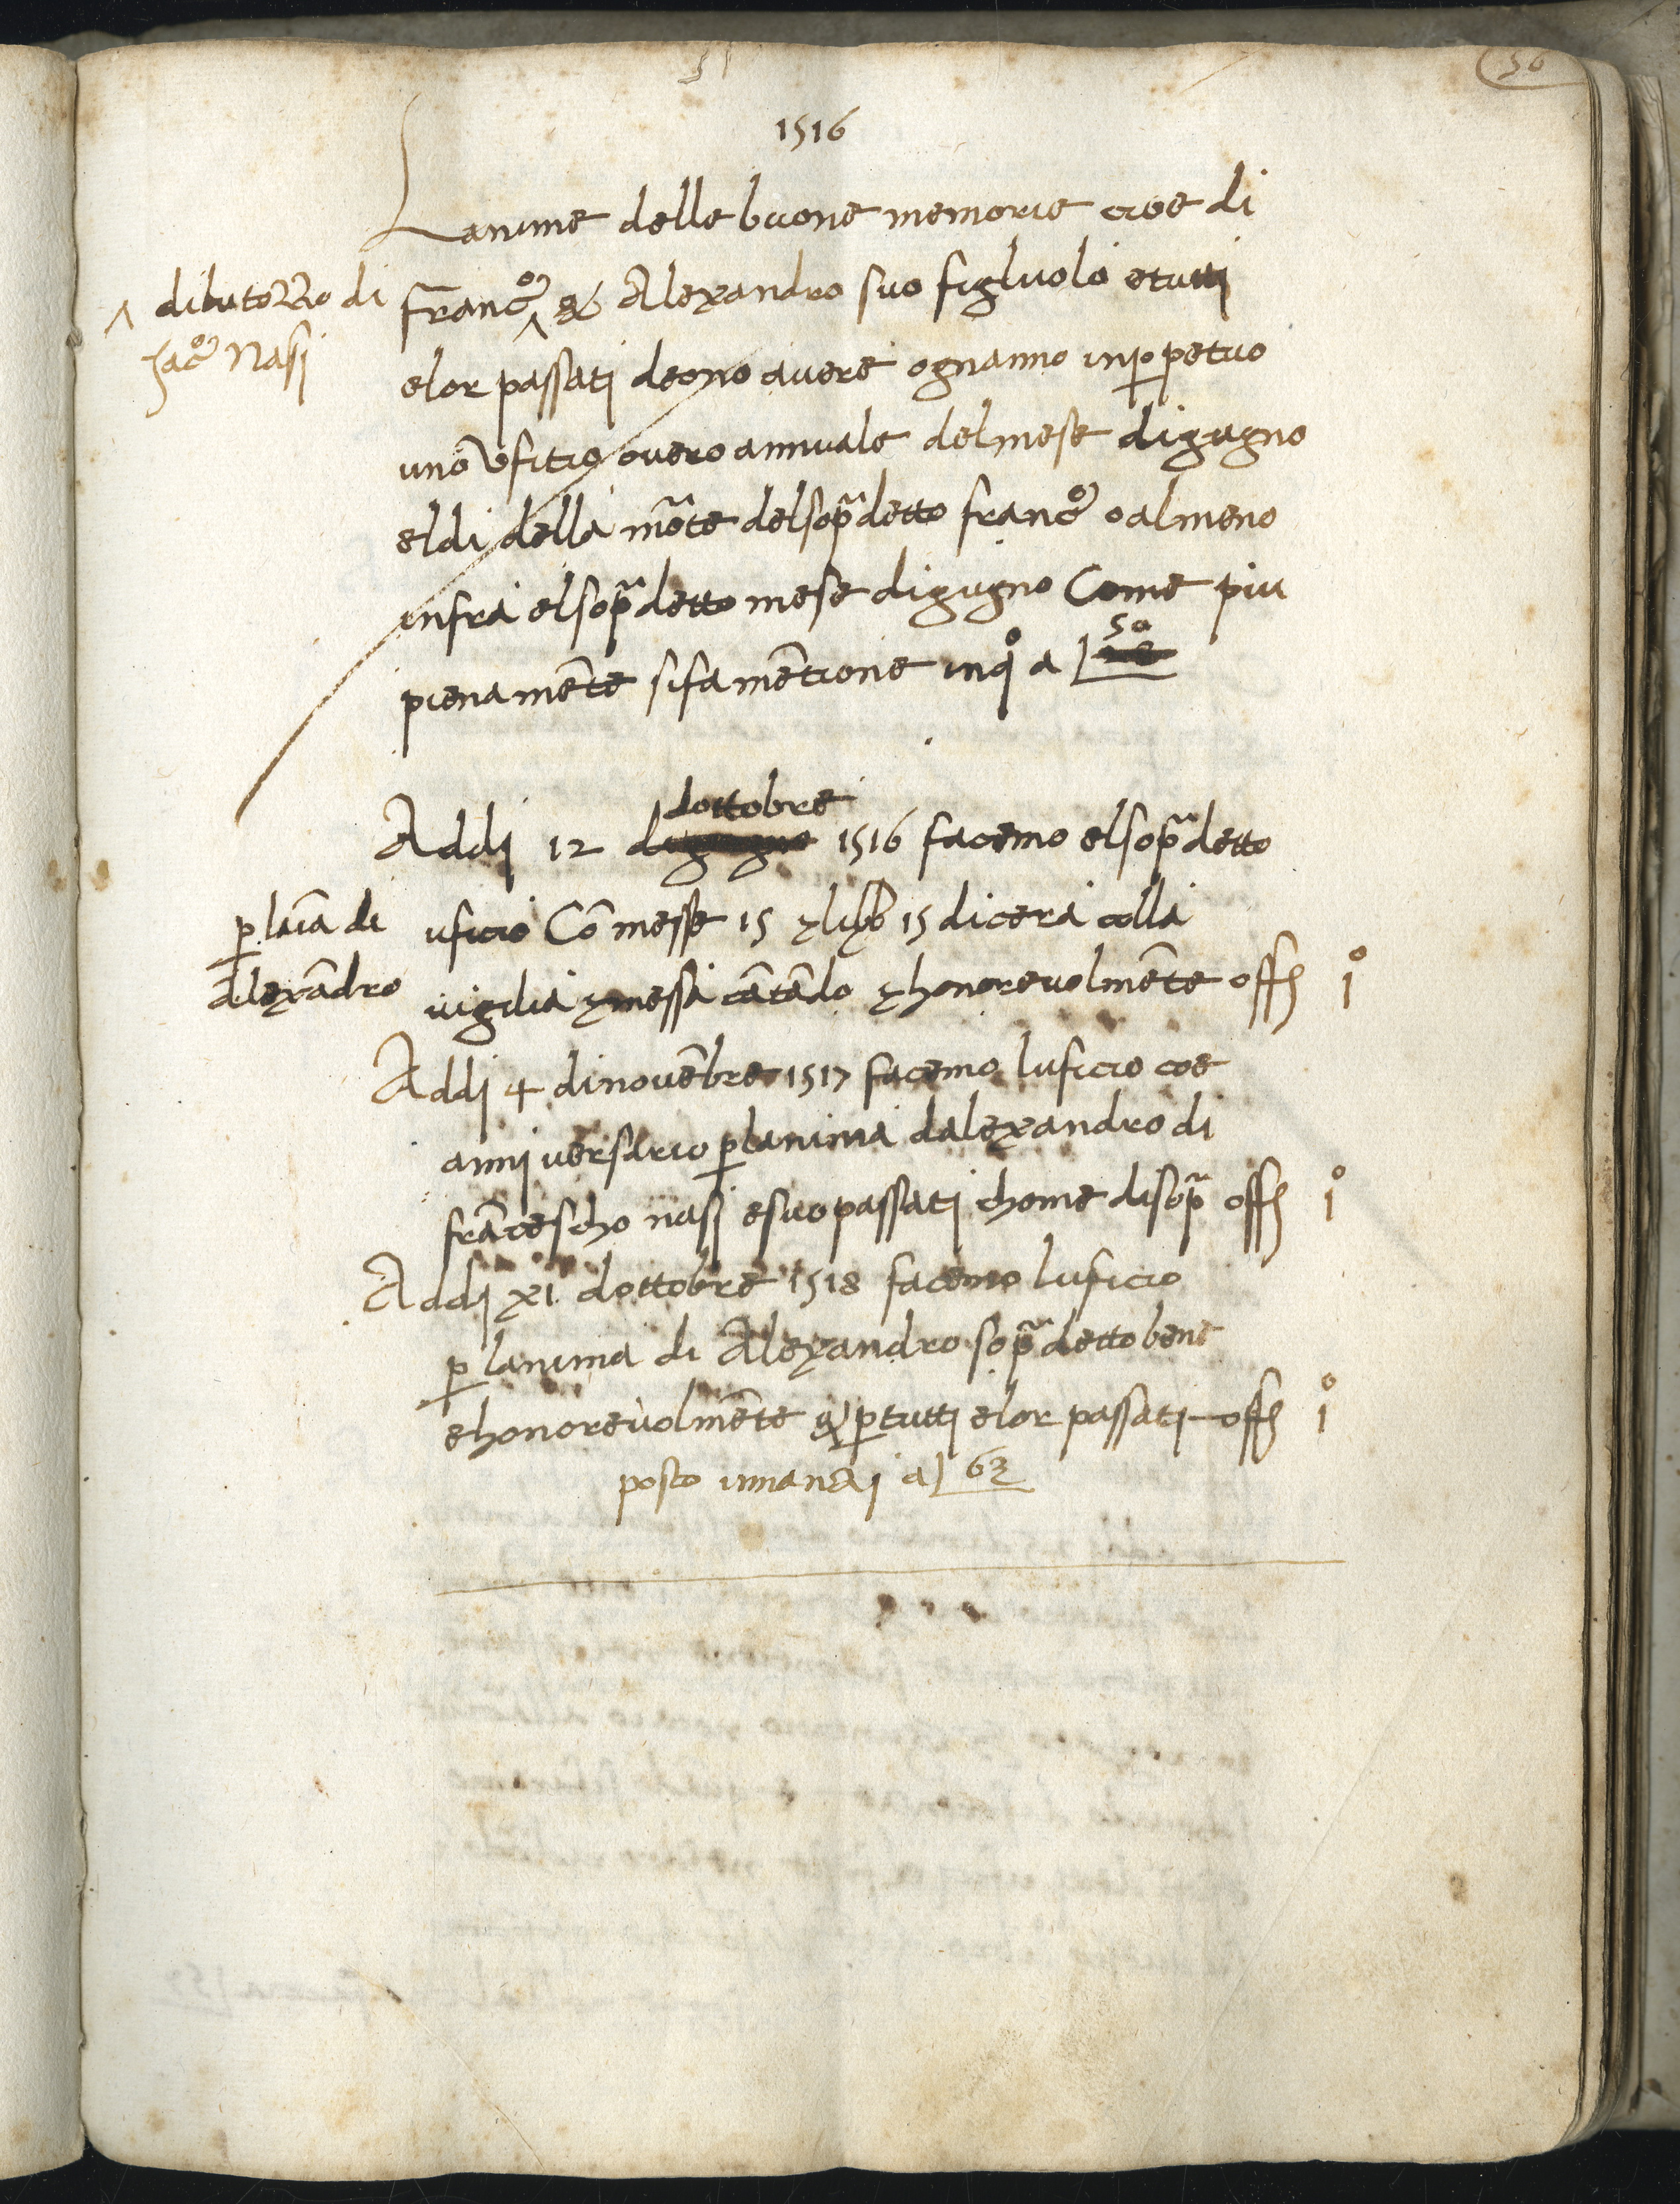 51
50
1516
Lanime delle buone memorie cioe di
^ dibutozzo di
Jacº Nasi
francº ^ & Alexandro suo figluolo etutti
elor passati deono avere ognanno inperpetuo
uno Ufitio overo annuale delmese digugno
eldi della mõte delsopradetto francº oalmeno
infra elsopradetto mese digugno Come piu
pienamẽte sifa mẽtione inqº a 50
Addi 12 dottobre 1516 facemo elsopradetto
p laĩa di
Alexãdro
uficio Cõ messe 15 ⁊ lib 15 dicera colla
vigilia ⁊ messa cãtãdo ⁊ honorevolmẽte off 1º
Addi 4 dinovẽbre 1517 facemo luficio coe
anniversario planima dalexandro di
frãcescho nasi esuo passati chome disopra off 1º
Addi XI dottobre 1518 facemo luficio
p lanima di Alexandro sopradetto bene
ehonorevolmẽte & ptutti elor passati off 1º
posto innanzi a 63